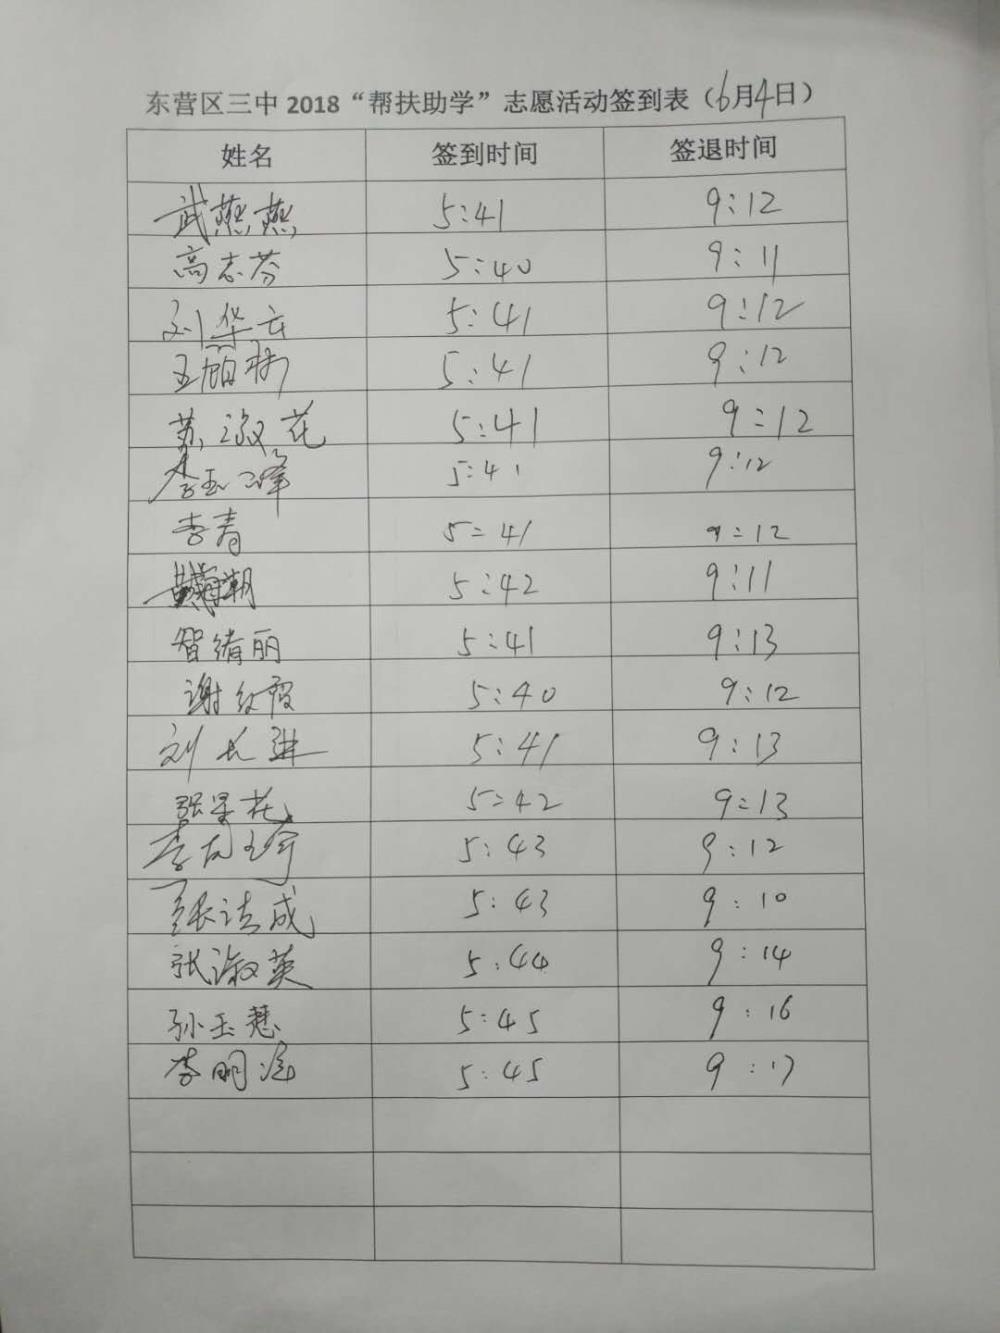 东营区三中 2018“帮扶助学”志愿活动签到表（6月4日）
姓名 签到时间 签退时间
武燕燕 5:41 9:12
高志芬 5:40 9:11
刘华云 5:41 9:12
王 5:41 9:12
苏淑花 5:41 9:12
李玉峰 5:41 9:12
李青 5:41 9:12
5:42 9:11
智绪丽 5:41 9:13
谢红霞 5:40 9:12
刘长 5:41 9:13
张星花 5:42 9:13
李 5:43 9:12
张洁成 5:43 9:10
张淑英 5:44 9:14
孙玉慧 5:45 9:16
李明 5:45 9:17